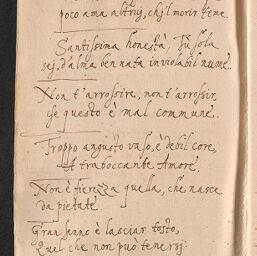 poco ama altruj, ch'il morir teme.
Santissima honestà, Tu sola
sej, d'alma ben nata inviolabil nume.
Non t'arrossire, non t'arrossir,
che questo è mal commune.
Troppo angusto vaso, è debil core,
A traboccante Amore.
Non è fierezza quella, che nasce
da pietate.
Gran senno è lasciar tosto,
Quel che non può tenersj.